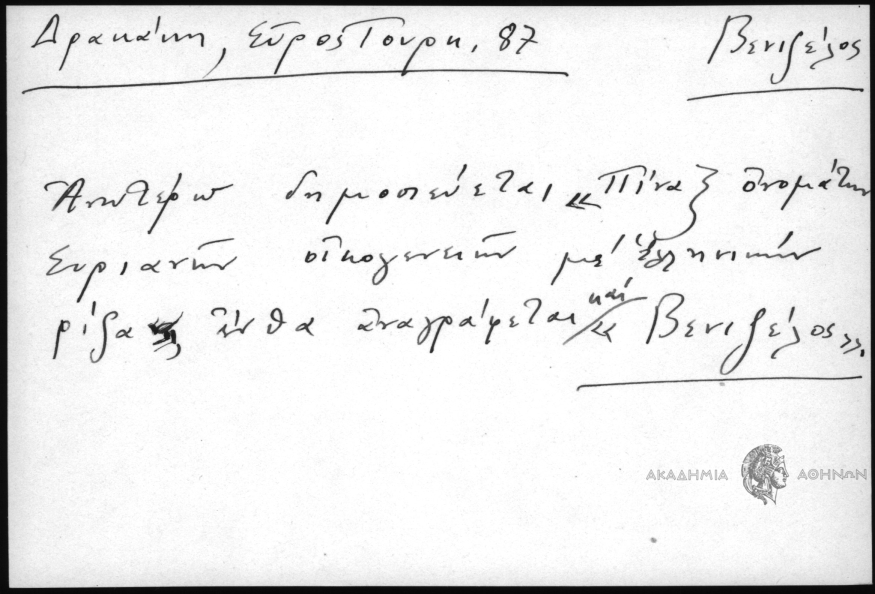 Δρακάκη, Σῦρος Τουρκ. 87
Βενιζέλος
Ἀνωτέρω δημοσιεύεται «Πίναξ ὀνομάτων
Συριανῶν οἰκογενειῶν μέ ἑλληνικήν
ρίζαν ἔνθα ἀναγράφεται καί «Βενιζέλος».
ΑΚΑΔΗΜΙΑ ΑΘΗΝΩΝ